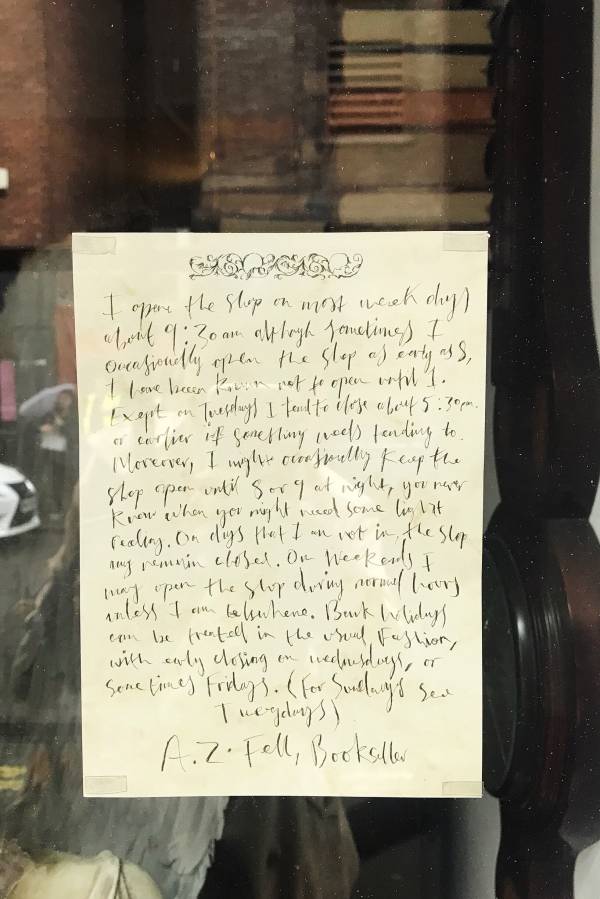 I open the shop on most week days
about 9:30am although sometimes I
occasionally open the shop as early as 8,
I have been known not to open until 1.
Exept on Tuesdays I tend to close about 5:30pm.
or earlier if something needs tending to.
Moreover, I might occasionally keep the
shop open until 8 or 9 at night, you never
know when you might need some light
reading. On days that I am not in, the shop
may remain closed. On Weekends I
may open the shop during normal hours
unless I am telswhere. Bank holidays
can be treated in the usual Fashion,
with early closing on wednesdays, or
sometimes Fridays. (For Sundays see
Tuesdays)
A.Z. Fell, Bookseller